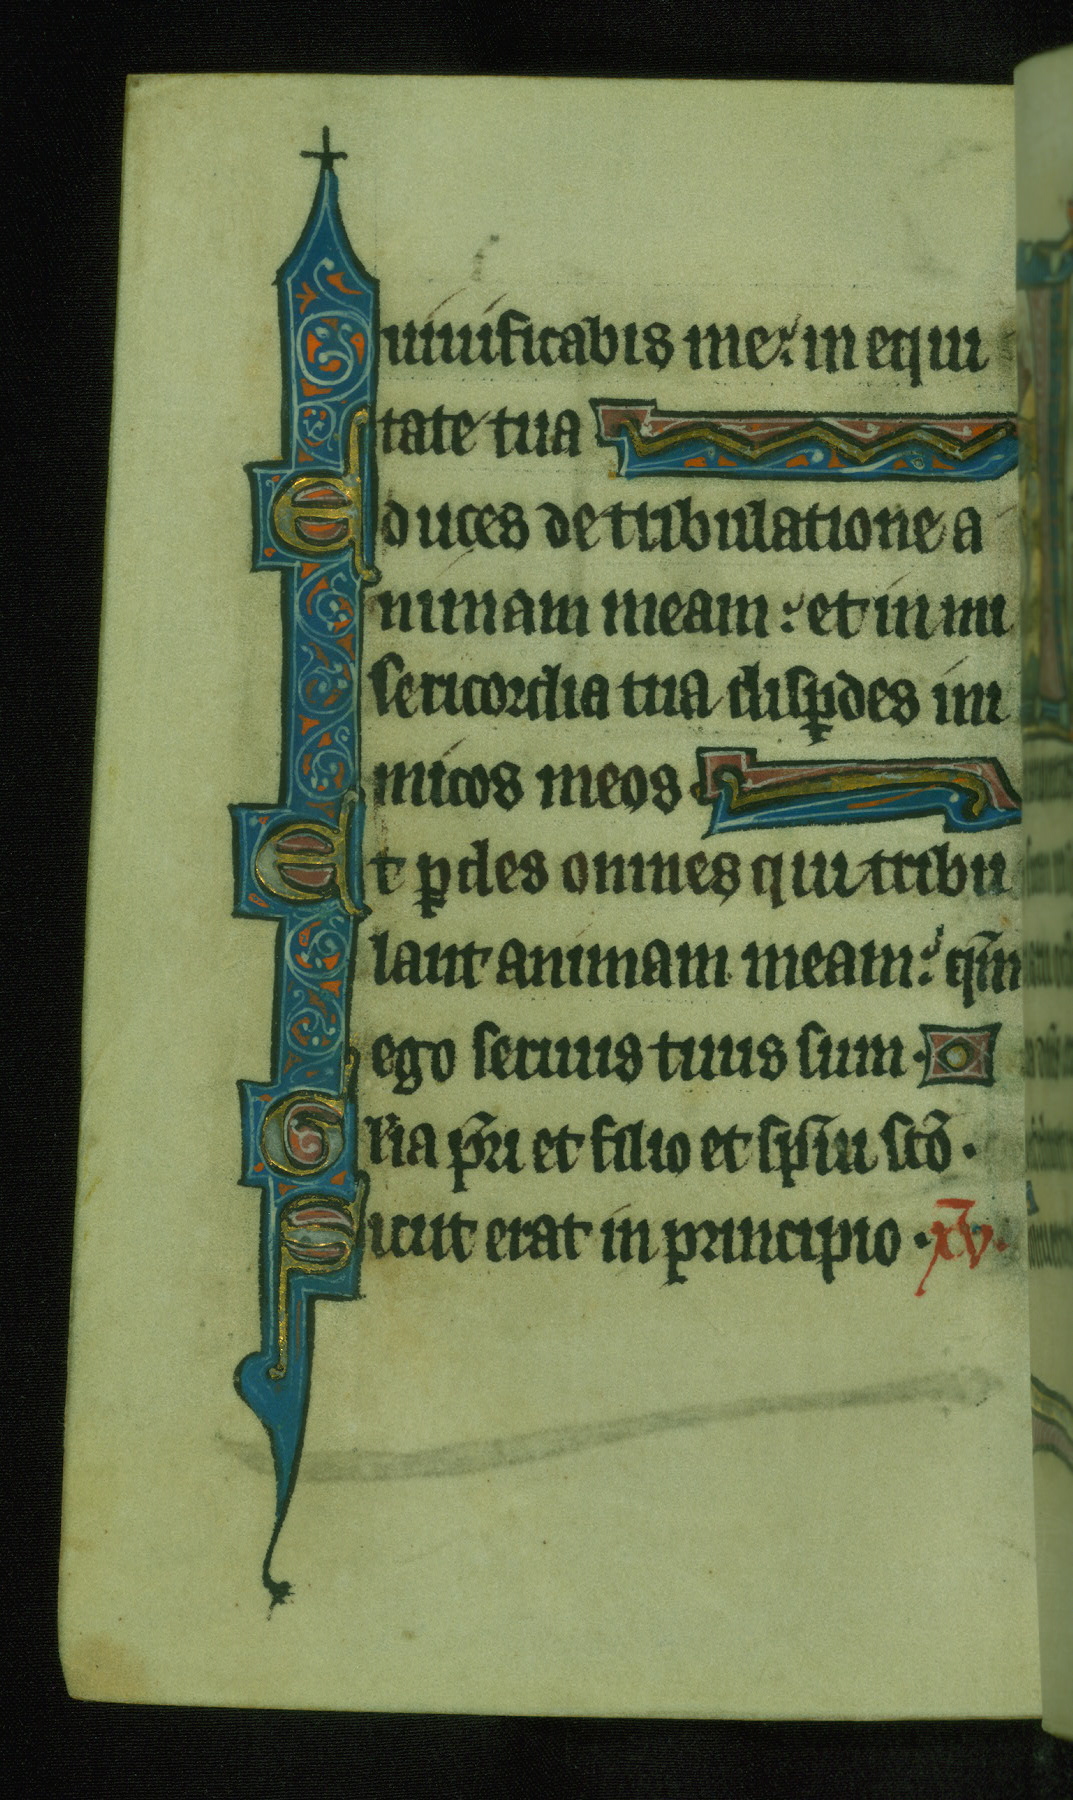 uiuificabis me: in equi
tate tua
Educes de tribulatione a
nimam meam: et in mi
sericordia tua disp̱des ini
micos meos
Et p̱des omnes qui tribu
lant animam meam: qm̄
ego seruus tuus sum.
Gl'ia pr̄i et filio et sp̄iu scō.
Sicut erat in principio.